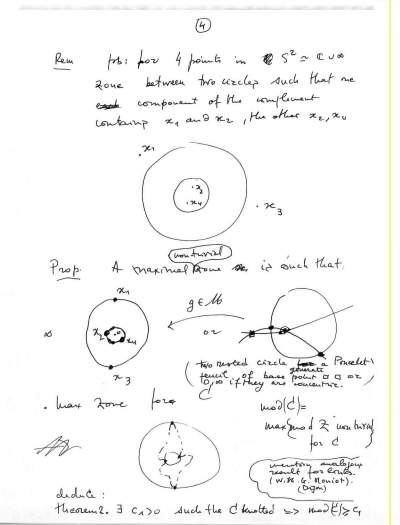 ④
Rem pb: for 4 points in S² ≃ ℂ ∪ ∞
zone between two circles such that one
component of the complement
contains x₁ and x₂, the other x₂, x₄
x₁
x₃
x₄
x₃
non trivial
Prop. A maximal zone is such that
x₁
g ∈
∞
x₂
0
x₄
x₃
(two nested circle a Poncelet
generate
pencil of base point
0, ∞ if they are concentric.)
. max zone for C
mod(C) =
max mod Z non trivial
for C
mention analogous
result for
(W. H. G. )
deduce :
theorem 2. ∃ c₁ > 0 such the C knotted => mod(C) ≥ c₁